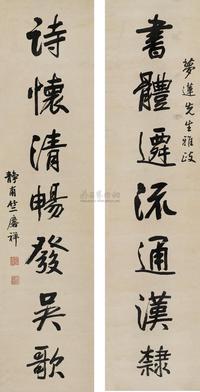 夢蓮先生雅政
書體遷流通漢隸
詩懷清暢發吳歌
靜甫竺麐祥